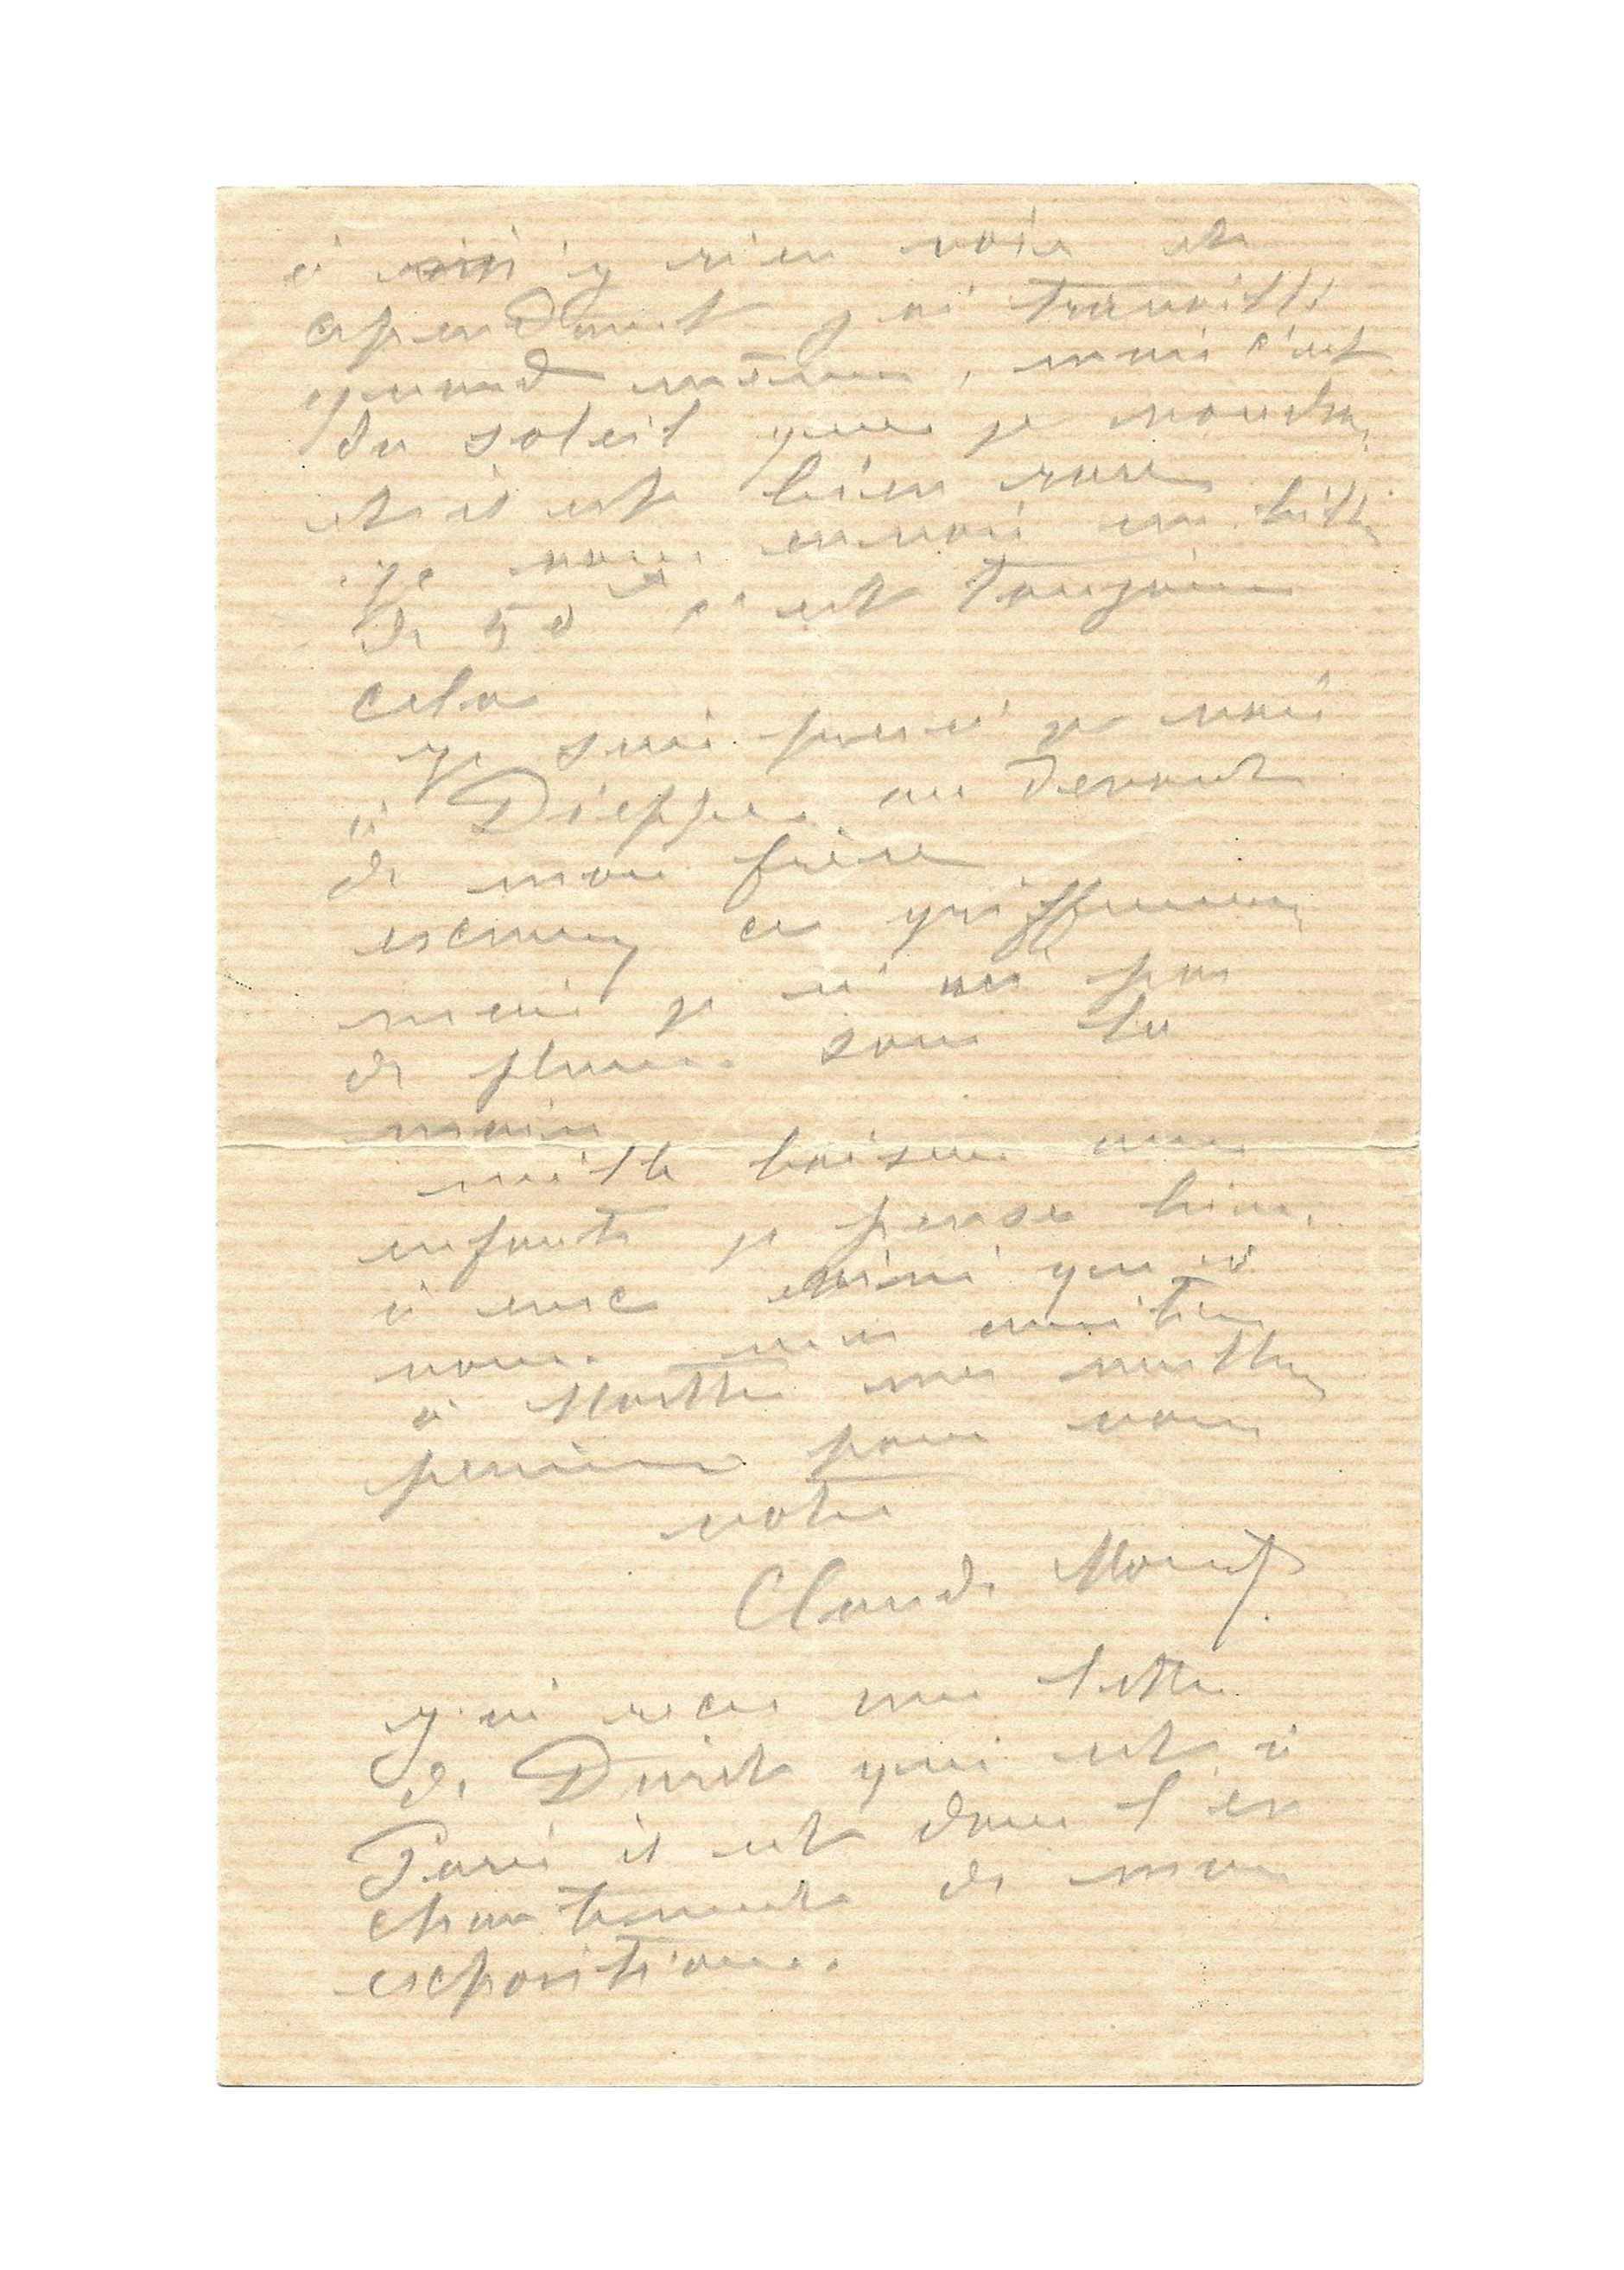 à n'y rien voir et
cependant j'ai travaillé
quand même, mais c'est
du soleil que je voudrai
et il est bien rare
je vous envoi un billet
de 50 c'est toujours
cela
je suis pressé je vais
à Dieppe au devant
de mon frère
excusez ce griffonnage
mais je n'ai pas
de plume sous la
main
mille baisers aux
enfants je pense bien
à eux ainsi qu'à
vous. mes amitiés
à Marthe mes meilleures
pensées pour vous
votre
Claude Monet
j'ai recu une lettre
de Duret qui est à
Paris il est dans l'en
chantement de mon
exposition.